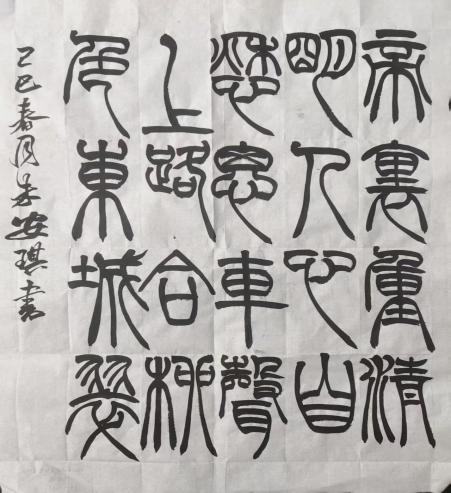 帝裏重清
明人心自
愁思車聲
上路合柳
色東城翠
乙巳春月朱安琪書